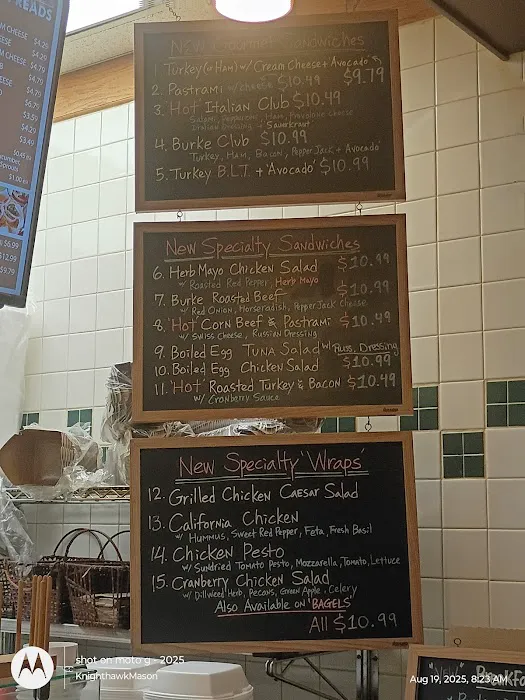 READS
M CHEESE $4.29
New Gourmet Sandwiches
1. Turkey (or Ham) w/ Cream Cheese + 'Avocado' $9.79
2. Pastrami w/ cheese $10.49
3. 'Hot' Italian Club $10.49
Salami, Pepperoni, Ham, Provolone Cheese
Italian Dressing + Sauerkraut
4. Burke Club $10.99
Turkey, Ham, Bacon, Pepper Jack + Avocado
5. Turkey B.L.T. + 'Avocado' $10.99
New Specialty Sandwiches
6. Herb Mayo Chicken Salad $10.99
w/ Roasted Red Pepper, Herb Mayo
7. Burke Roasted Beef $10.99
w/ Red Onion, Horseradish, Pepper Jack Cheese
8. 'Hot' Corn Beef & Pastrami $10.49
w/ Swiss Cheese, Russian Dressing
9. Boiled Egg Tuna Salad w/ Russ. Dressing
10. Boiled Egg Chicken Salad $10.99
11. 'Hot' Roasted Turkey & Bacon $10.49
w/ Cranberry Sauce
New Specialty 'Wraps'
12. Grilled Chicken Caesar Salad
13. California Chicken
w/ Hummus, Sweet Red Pepper, Feta, Fresh Basil
14. Chicken Pesto
w/ Sundried Tomato Pesto, Mozzarella, Tomato, Lettuce
15. Cranberry Chicken Salad
w/ Dillweed Herb, Pecans, Green Apple, Celery
Also Available on 'BAGELS'
All $10.99
"New" Breakfa
shot on moto g - 2025
KnighthawkMason
Aug 19, 2025, 8:23 AM